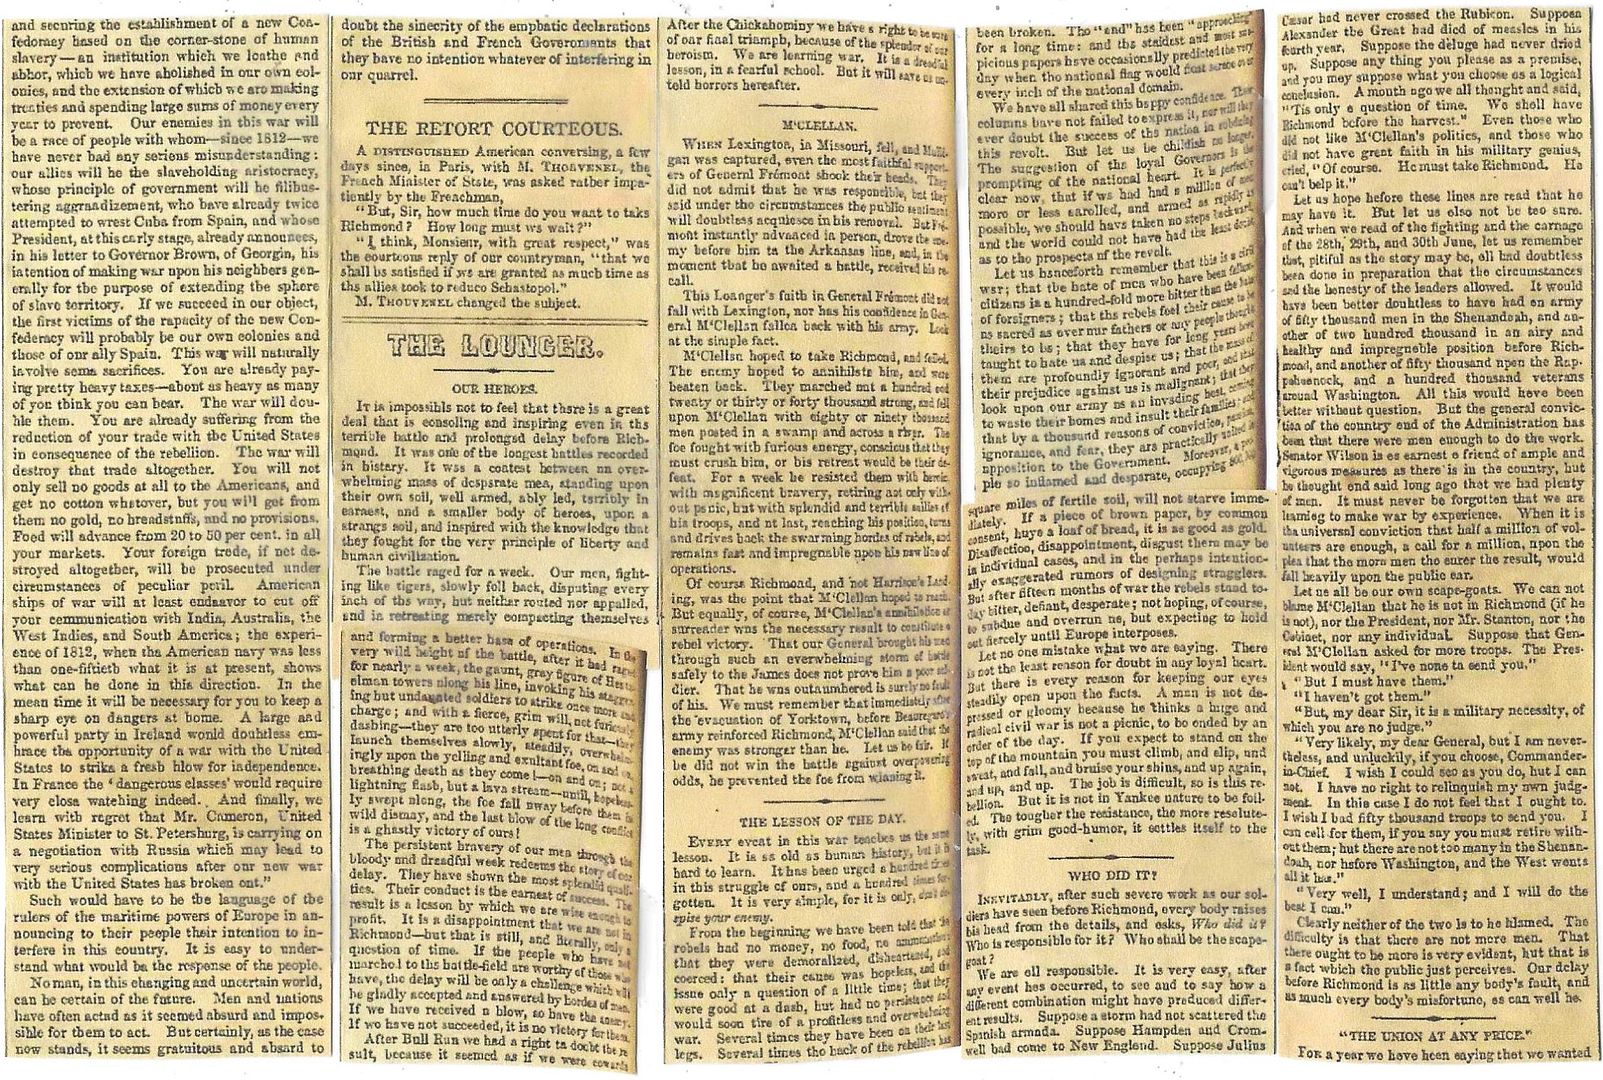 and securing the establishment of a new Con-
federacy based on the corner-stone of human
slavery—an institution which we loathe and
abhor, which we have abolished in our own col-
onies, and the extension of which we are making
treaties and spending large sums of money every
year to prevent. Our enemies in this war will
be a race of people with whom—since 1812—we
have never had any serious misunderstanding:
our allies will be the slaveholding aristocracy,
whose principle of government will be filibus-
tering aggrandizement, who have already twice
attempted to wrest Cuba from Spain, and whose
President, at this early stage, already announces,
in his letter to Governor Brown, of Georgia, his
intention of making war upon his neighbors gen-
erally for the purpose of extending the sphere
of slave territory. If we succeed in our object,
the first victims of the rapacity of the new Con-
federacy will probably be our own colonies and
those of our ally Spain. This war will naturally
involve some sacrifices. You are already pay-
ing pretty heavy taxes—about as heavy as many
of you think you can bear. The war will dou-
ble them. You are already suffering from the
reduction of your trade with the United States
in consequence of the rebellion. The war will
destroy that trade altogether. You will not
only sell no goods at all to the Americans, and
get no cotton whatever, but you will get from
them no gold, no breadstuffs, and no provisions.
Food will advance from 20 to 50 per cent. in all
your markets. Your foreign trade, if not de-
stroyed altogether, will be prosecuted under
circumstances of peculiar peril. American
ships of war will at least endeavor to cut off
your communication with India, Australia, the
West Indies, and South America; the experi-
ence of 1812, when the American navy was less
than one-fiftieth what it is at present, shows
what can be done in this direction. In the
mean time it will be necessary for you to keep a
sharp eye on dangers at home. A large and
powerful party in Ireland would doubtless em-
brace the opportunity of a war with the United
States to strike a fresh blow for independence.
In France the 'dangerous classes' would require
very close watching indeed. And finally, we
learn with regret that Mr. Cameron, United
States Minister to St. Petersburg, is carrying on
a negotiation with Russia which may lead to
very serious complications after our new war
with the United States has broken out."
Such would have to be the language of the
rulers of the maritime powers of Europe in an-
nouncing to their people their intention to in-
terfere in this country. It is easy to under-
stand what would be the response of the people.
No man, in this changing and uncertain world,
can be certain of the future. Men and nations
have often acted as it seemed absurd and impos-
sible for them to act. But certainly, as the case
now stands, it seems gratuitous and absurd to
doubt the sincerity of the emphatic declarations
of the British and French Governments that
they have no intention whatever of interfering in
our quarrel.
THE RETORT COURTEOUS.
A DISTINGUISHED American conversing, a few
days since, in Paris, with M. THOUVENEL, the
French Minister of State, was asked rather impa-
tiently by the Frenchman,
"But, Sir, how much time do you want to take
Richmond? How long must we wait?"
"I think, Monsieur, with great respect," was
the courteous reply of our countryman, "that we
shall be satisfied if we are granted as much time as
the allies took to reduce Sebastopol."
M. THOUVENEL changed the subject.
THE LOUNGER.
OUR HEROES.
It is impossible not to feel that there is a great
deal that is consoling and inspiring even in the
terrible battle and prolonged delay before Rich-
mond. It was one of the longest battles recorded
in history. It was a contest between an over-
whelming mass of desperate men, standing upon
their own soil, well armed, ably led, terribly in
earnest, and a smaller body of heroes, upon a
strange soil, and inspired with the knowledge that
they fought for the very principle of liberty and
human civilization.
The battle raged for a week. Our men, fight-
ing like tigers, slowly fell back, disputing every
inch of the way, but neither routed nor appalled,
and in retreating merely compacting themselves
and forming a better base of operations. In the
very wild height of the battle, after it had raged
for nearly a week, the gaunt, gray figure of Heint-
zelman towers along his line, invoking his stagger-
ing but undaunted soldiers to strike once more and
charge; and with a fierce, grim will, not furiously
dashing—they are too utterly spent for that—they
launch themselves slowly, steadily, overwhelm-
ingly upon the yelling and exultant foe, on and on,
breathing death as they come!—on and on; not a
lightning flash, but a lava stream—until, hopeless-
ly swept along, the foe fall away before them in
wild dismay, and the last blow of the long conflict
is a ghastly victory of ours!
The persistent bravery of our men through the
bloody and dreadful week redeems the story of our
delay. They have shown the most splendid quali-
ties. Their conduct is the earnest of success. The
result is a lesson by which we are wise enough to
profit. It is a disappointment that we are not in
Richmond—but that is still, and literally, only a
question of time. If the people who have not
marched to the battle-field are worthy of those who
have, the delay will be only a challenge which will
be gladly accepted and answered by hordes of men.
If we have received a blow, so have the enemy.
If we have not succeeded, it is no victory for them.
After Bull Run we had a right to doubt the re-
sult, because it seemed as if we were cowards
After the Chickahominy we have a right to be sure
of our final triumph, because of the splendor of our
heroism. We are learning war. It is a dreadful
lesson, in a fearful school. But it will save us un-
told horrors hereafter.
M'CLELLAN.
WHEN Lexington, in Missouri, fell, and Mulli-
gan was captured, even the most faithful support-
ers of General Frémont shook their heads. They
did not admit that he was responsible, but they
said under the circumstances the public sentiment
will doubtless acquiesce in his removal. But Fré-
mont instantly advanced in person, drove the ene-
my before him to the Arkansas line, and, in the
moment that he awaited a battle, received his re-
call.
This Lounger's faith in General Frémont did not
fall with Lexington, nor has his confidence in Gen-
eral M'Clellan fallen back with his army. Look
at the simple fact.
M'Clellan hoped to take Richmond, and failed.
The enemy hoped to annihilate him, and were
beaten back. They marched out a hundred and
twenty or thirty or forty thousand strong, and fell
upon M'Clellan with eighty or ninety thousand
men posted in a swamp and across a river. The
foe fought with furious energy, conscious that they
must crush him, or his retreat would be their de-
feat. For a week he resisted them with heroic,
with magnificent bravery, retiring not only with-
out panic, but with splendid and terrible sallies of
his troops, and at last, reaching his position, turns
and drives back the swarming hordes of rebels, and
remains fast and impregnable upon his new line of
operations.
Of course Richmond, and not Harrison's Land-
ing, was the point that M'Clellan hoped to reach.
But equally, of course, M'Clellan's annihilation or
surrender was the necessary result to constitute a
rebel victory. That our General brought his men
through such an overwhelming storm of battle
safely to the James does not prove him a poor sol-
dier. That he was outnumbered is surely no fault
of his. We must remember that immediately after
the evacuation of Yorktown, before Beauregard's
army reinforced Richmond, M'Clellan said that the
enemy was stronger than he. Let us be fair. If
he did not win the battle against overpowering
odds, he prevented the foe from winning it.
THE LESSON OF THE DAY.
EVERY event in this war teaches us the same
lesson. It is as old as human history, but it is
hard to learn. It has been urged a hundred times
in this struggle of ours, and a hundred times for-
gotten. It is very simple, for it is only, don't de-
spise your enemy.
From the beginning we have been told that the
rebels had no money, no food, no ammunition;
that they were demoralized, disheartened, and
coerced: that their cause was hopeless, and the
issue only a question of a little time; that they
were good at a dash, but had no persistence and
would soon tire of a profitless and overwhelming
war. Several times they have been on their last
legs. Several times the back of the rebellion has
been broken. The "end" has been "approaching"
for a long time: and the staidest and most sus-
picious papers have occasionally predicted the very
day when the national flag would float serene over
every inch of the national domain.
We have all shared this happy confidence. These
columns have not failed to express it, nor will they
ever doubt the success of the nation in subduing
this revolt. But let us be childish no longer.
The suggestion of the loyal Governors is the
prompting of the national heart. It is perfectly
clear now, that if we had had a million of men
more or less enrolled, and armed as rapidly as
possible, we should have taken no steps backward,
and the world could not have had the least doubt
as to the prospects of the revolt.
Let us henceforth remember that this is a civil
war; that the hate of men who have been fellow-
citizens is a hundred-fold more bitter than the hate
of foreigners; that the rebels feel their cause to be
as sacred as ever our fathers or any people thought
theirs to be; that they have for long years been
taught to hate us and despise us; that the mass of
them are profoundly ignorant and poor, and that
their prejudice against us is malignant; that they
look upon our army as an invading host, coming
to waste their homes and insult their families; and
that by a thousand reasons of conviction, passion,
ignorance, and fear, they are practically united in
opposition to the Government. Moreover, a peo-
ple so inflamed and desperate, occupying 800,000
square miles of fertile soil, will not starve imme-
diately. If a piece of brown paper, by common
consent, buys a loaf of bread, it is as good as gold.
Disaffection, disappointment, disgust there may be
in individual cases, and in the perhaps intention-
ally exaggerated rumors of designing stragglers.
But after fifteen months of war the rebels stand to-
day bitter, defiant, desperate; not hoping, of course,
to subdue and overrun us, but expecting to hold
out fiercely until Europe interposes.
Let no one mistake what we are saying. There
is not the least reason for doubt in any loyal heart.
But there is every reason for keeping our eyes
steadily open upon the facts. A man is not de-
pressed or gloomy because he thinks a huge and
radical civil war is not a picnic, to be ended by an
order of the day. If you expect to stand on the
top of the mountain you must climb, and slip, and
sweat, and fall, and bruise your shins, and up again,
and up, and up. The job is difficult, so is this re-
bellion. But it is not in Yankee nature to be foil-
ed. The tougher the resistance, the more resolute-
ly, with grim good-humor, it settles itself to the
task.
WHO DID IT?
INEVITABLY, after such severe work as our sol-
diers have seen before Richmond, every body raises
his head from the details, and asks, Who did it?
Who is responsible for it? Who shall be the scape-
goat?
We are all responsible. It is very easy, after
any event has occurred, to see and to say how a
different combination might have produced differ-
ent results. Suppose a storm had not scattered the
Spanish armada. Suppose Hampden and Crom-
well had come to New England. Suppose Julius
Cæsar had never crossed the Rubicon. Suppose
Alexander the Great had died of measles in his
fourth year. Suppose the deluge had never dried
up. Suppose any thing you please as a premise,
and you may suppose what you choose as a logical
conclusion. A month ago we all thought and said,
"'Tis only a question of time. We shall have
Richmond before the harvest." Even those who
did not like M'Clellan's politics, and those who
did not have great faith in his military genius,
cried, "Of course. He must take Richmond. He
can't help it."
Let us hope before these lines are read that he
may have it. But let us also not be too sure.
And when we read of the fighting and the carnage
of the 28th, 29th, and 30th June, let us remember
that, pitiful as the story may be, all had doubtless
been done in preparation that the circumstances
and the honesty of the leaders allowed. It would
have been better doubtless to have had an army
of fifty thousand men in the Shenandoah, and an-
other of two hundred thousand in an airy and
healthy and impregnable position before Rich-
mond, and another of fifty thousand upon the Rap-
pahannock, and a hundred thousand veterans
around Washington. All this would have been
better without question. But the general convic-
tion of the country and of the Administration has
been that there were men enough to do the work.
Senator Wilson is as earnest a friend of ample and
vigorous measures as there is in the country, but
he thought and said long ago that we had plenty
of men. It must never be forgotten that we are
learning to make war by experience. When it is
the universal conviction that half a million of vol-
unteers are enough, a call for a million, upon the
plea that the more men the surer the result, would
fall heavily upon the public ear.
Let us all be our own scape-goats. We can not
blame M'Clellan that he is not in Richmond (if he
is not), nor the President, nor Mr. Stanton, nor the
Cabinet, nor any individual. Suppose that Gen-
eral M'Clellan asked for more troops. The Pres-
ident would say, "I've none to send you."
"But I must have them."
"I haven't got them."
"But, my dear Sir, it is a military necessity, of
which you are no judge."
"Very likely, my dear General, but I am never-
theless, and unluckily, if you choose, Commander-
in-Chief. I wish I could see as you do, but I can
not. I have no right to relinquish my own judg-
ment. In this case I do not feel that I ought to.
I wish I had fifty thousand troops to send you. I
can call for them, if you say you must retire with-
out them; but there are not too many in the Shenan-
doah, nor before Washington, and the West wants
all it has."
"Very well, I understand; and I will do the
best I can."
Clearly neither of the two is to be blamed. The
difficulty is that there are not more men. That
there ought to be more is very evident, but that is
a fact which the public just perceives. Our delay
before Richmond is as little any body's fault, and
as much every body's misfortune, as can well be.
"THE UNION AT ANY PRICE."
FOR a year we have been saying that we wanted